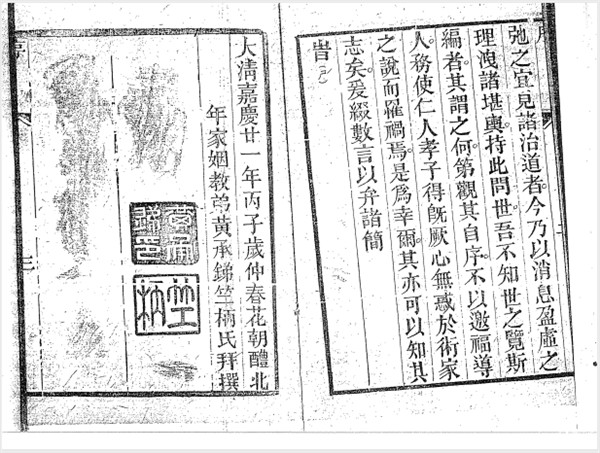 弛之宜見諸治道者今乃以消息盈虛之
理洩諸堪輿持此問世吾不知世之覽斯
編者其謂之何第觀其自序不以邀福導
人務使仁人孝子得旣厥心無惑於術家
之說而罹禍焉是爲幸爾其亦可以知其
志矣爰綴數言以弁諸簡
旹
大清嘉慶廿一年丙子歲仲春花朝醴北
年家姻教弟黃承錦竺柄氏拜撰
竺柄
序
二